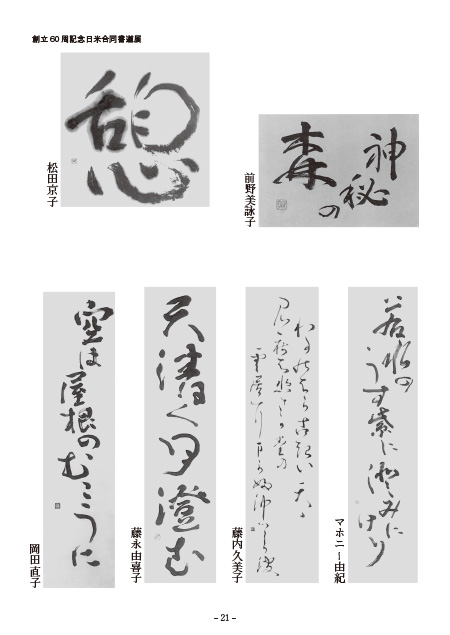 創立60周記念日米合同書道展
憩
松田京子
神秘の
森
前野美詠子
若水の
うす紫に澄みに
けり
マホニー由紀
藤内久美子
天清く月澄む
藤永由喜子
空は屋根のむこうに
岡田直子
– 21 –